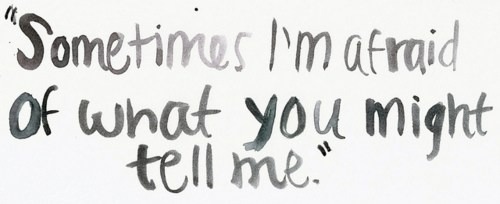 "Sometimes I'm afraid
Of what you might
tell me."